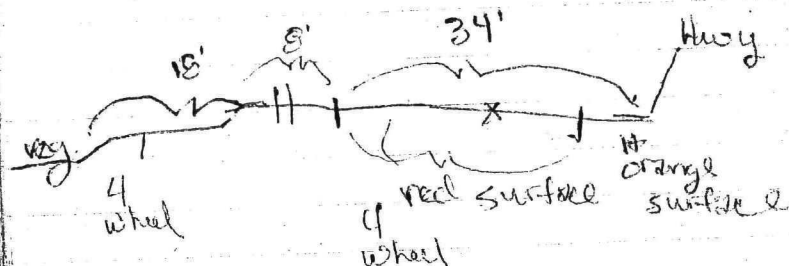 18' 8' 34' Hwy
veg.
4 wheel
4 wheel
red surface
lt orange surface